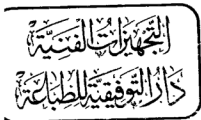 التَّجْهِيزَاتُ الْفَنِيَّة
دَارُ التَّوفِيقِيَّة لِلطِّبَاعَة